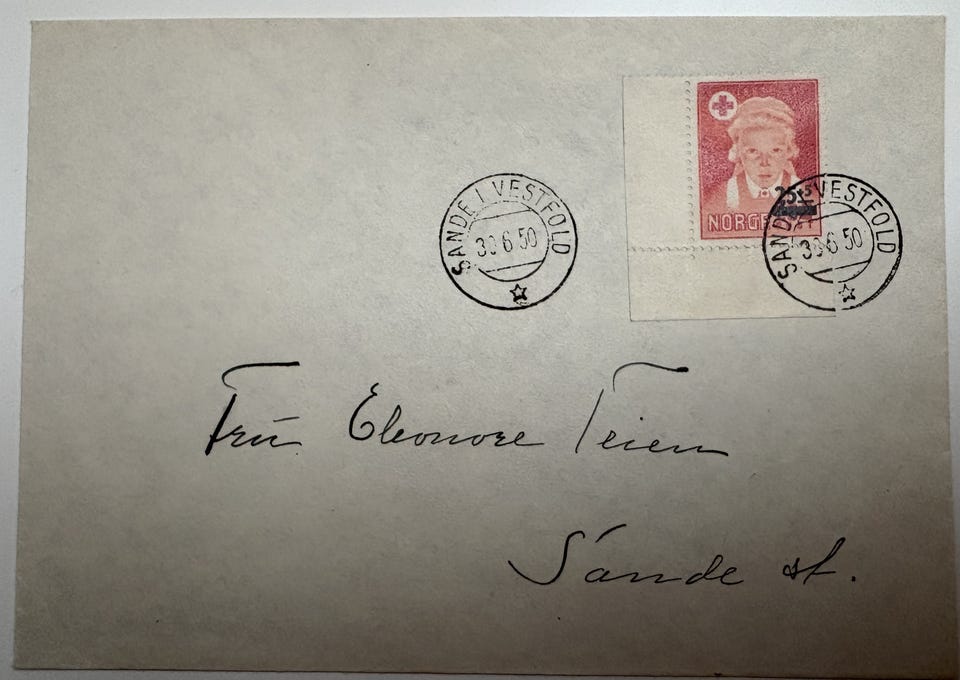 NORGE
25+5
SANDE I VESTFOLD
30 6 50
SANDE I VESTFOLD
30 6 50
Frú Eleonore Teien
Sande st.